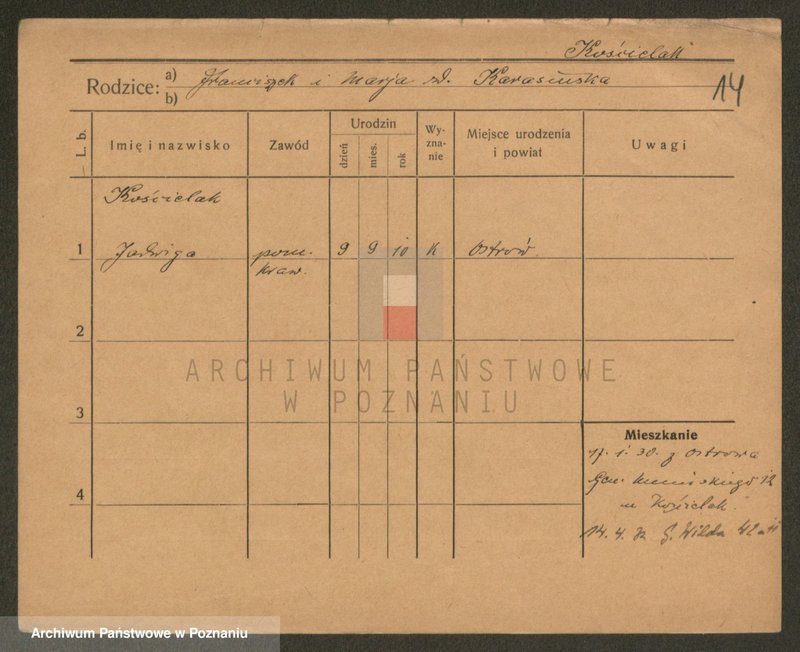 Kościelak
Rodzice: a) Franciszek i Marja zd. Karasińska
b)
14
L. b. Imię i nazwisko Zawód Urodzin dzień mies. rok Wy-zna-nie Miejsce urodzenia i powiat Uwagi
Kościelak
1 Jadwiga pom. 9 9 10 K Ostrów
kraw.
2
ARCHIWUM PAŃSTWOWE
W POZNANIU
3
Mieszkanie
17. 1. 30. z Ostrowa
Gen. 12
u Kościelak
14. 4. 32 G. Wilda 42
4
Archiwum Państwowe w Poznaniu